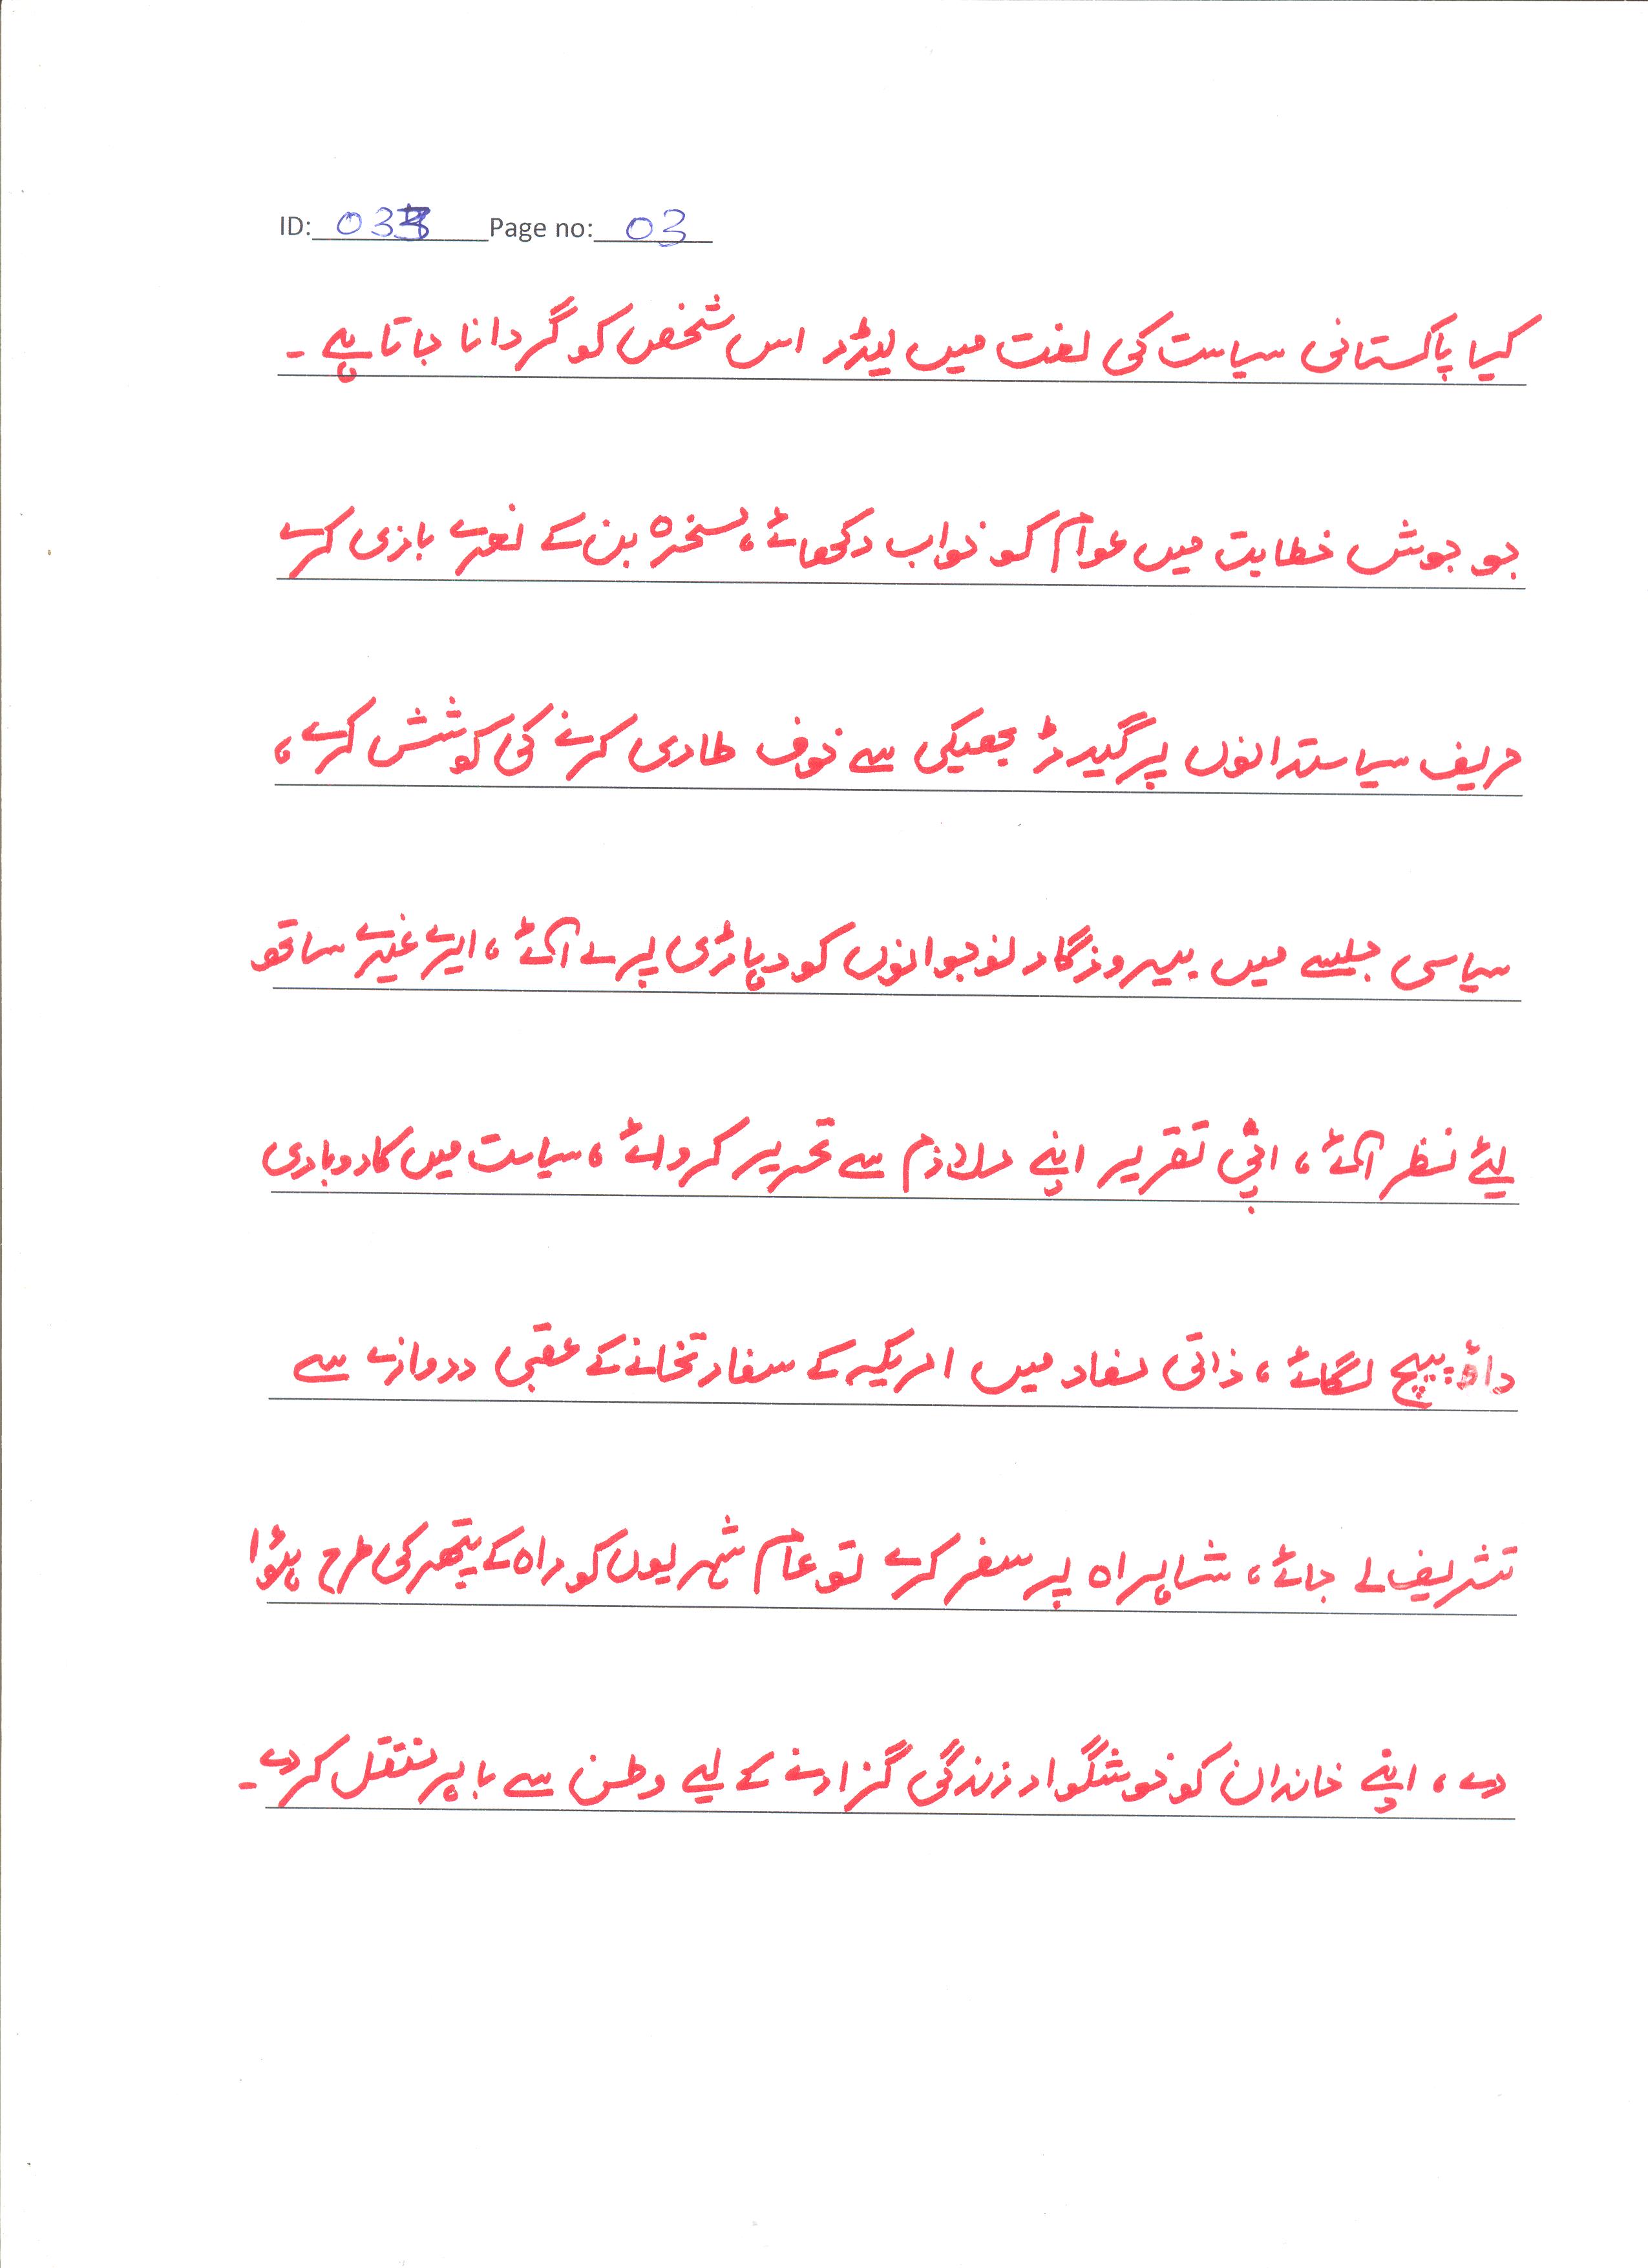 ID: 033 Page no: 03
کیا پاکستانی سیاست کی لغت میں لیڈر اس شخص کو گردانا جاتا ہے ۔
جو جوش خطابت میں عوام کو خواب دکھائے ، مسخرہ بن کے نعرے بازی کرے
حریف سیاستدانوں پر گیدڑ بھبکی سے خوف طاری کرنے کی کوشش کرے ،
سیاسی جلسے میں بیروزگار نوجوانوں کو دیہاڑی پر لے آئے ، ایرے غیرے ساتھ
لیے نظر آئے ، اپنی تقریر اپنے ملازم سے تحریر کروائے ، سیاست میں کاروباری
داؤ پیچ لگائے ، ذاتی مفاد میں امریکہ کے سفارتخانے کے عقبی دروازے سے
تشریف لے جائے ، شاہراہ پر سفر کرے تو عام شہریوں کو راہ کے پتھر کی طرح ہٹوا
دے ، اپنے خاندان کو خوشگوار زندگی گزارنے کے لیے وطن سے باہر منتقل کر دے ۔